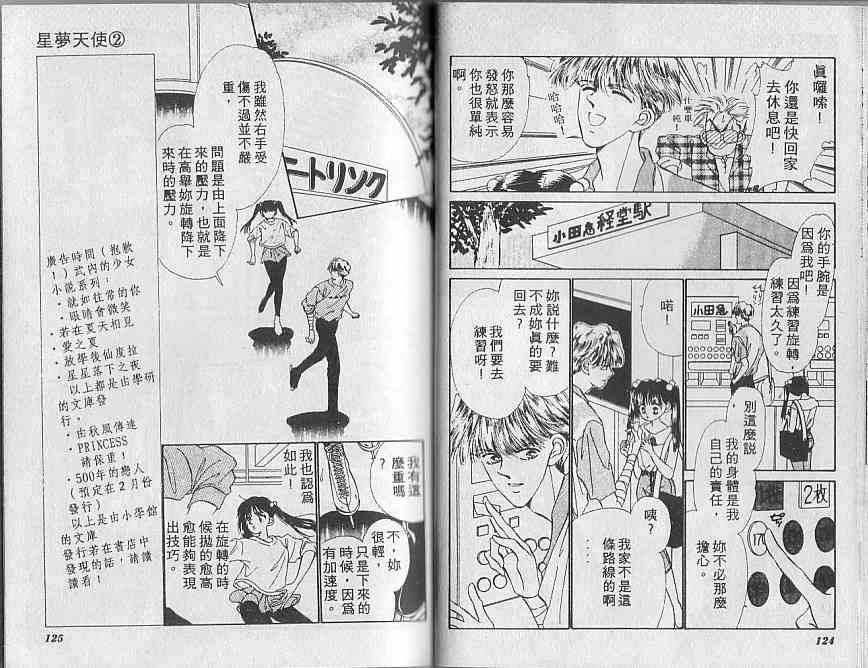 眞囉嗦！
你還是快回家
去休息吧！
什麼單
純！
哈哈哈！
你那麼容易
發怒就表示
你也很單純
啊。
小田急経堂駅
你的手腕是
因爲我吧！
因爲練習旋轉，
練習太久了。
小田急
別這麼說
我的身體是我
自己的責任，
妳不必那麼
擔心。
2枚
170
喏！
咦？
我家不是這
條路線的啊
妳說什麼？難
不成妳眞的要
回去？
我們要去
練習呀！
124
星夢天使②
ニートリンク
我雖然右手受
傷不過並不嚴
重，
問題是由上面降下
來的壓力，也就是
在高舉妳旋轉降下
來時的壓力。
我有這
麼重嗎
？
不，妳
很輕，
只是下來的
時候，因爲
有加速度。
我也認爲
如此！
在旋轉的時
候拋的愈高
愈能夠表現
出技巧。
廣告時間（抱歉
！）式內的少女
小說系列：
・就如往常的你
・眼睛會微笑
・若在夏天相見
・愛之夏
・放學後仙度拉
・星星落下之夜
以上都是由學研
的文庫發
行。
・由秋風傳達
・PRINCESS
請保重！
・500年的戀人
（預定在2月份
發行）
以上是由小學館
的文庫
發行若在書店中
發現的話，請讀
讀看！
125